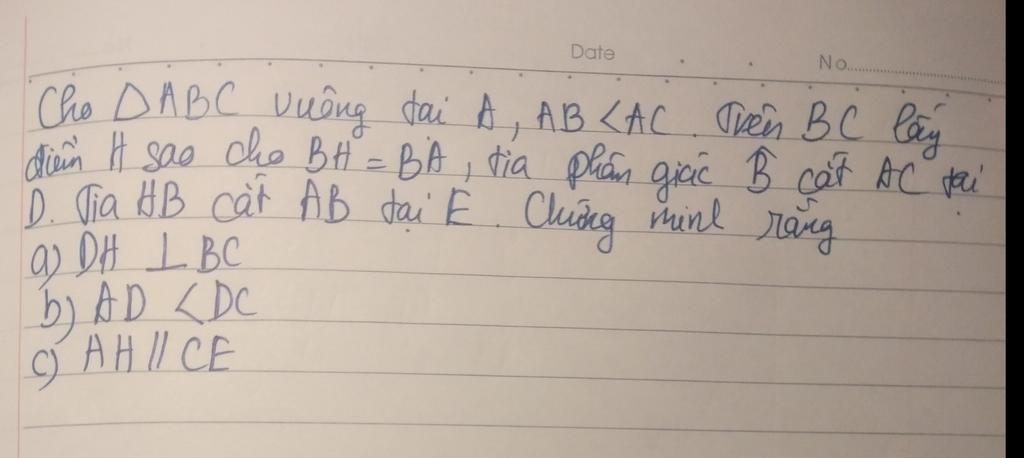 Date No
Cho ΔABC vuông tai A, AB < AC. Trên BC lấy
điểm H sao cho BH = BA, tia phân giác B̂ cắt AC tại
D. Tia HB cắt AB tại E. Chứng minh rằng
a) DH ⊥ BC
b) AD < DC
c) AH // CE